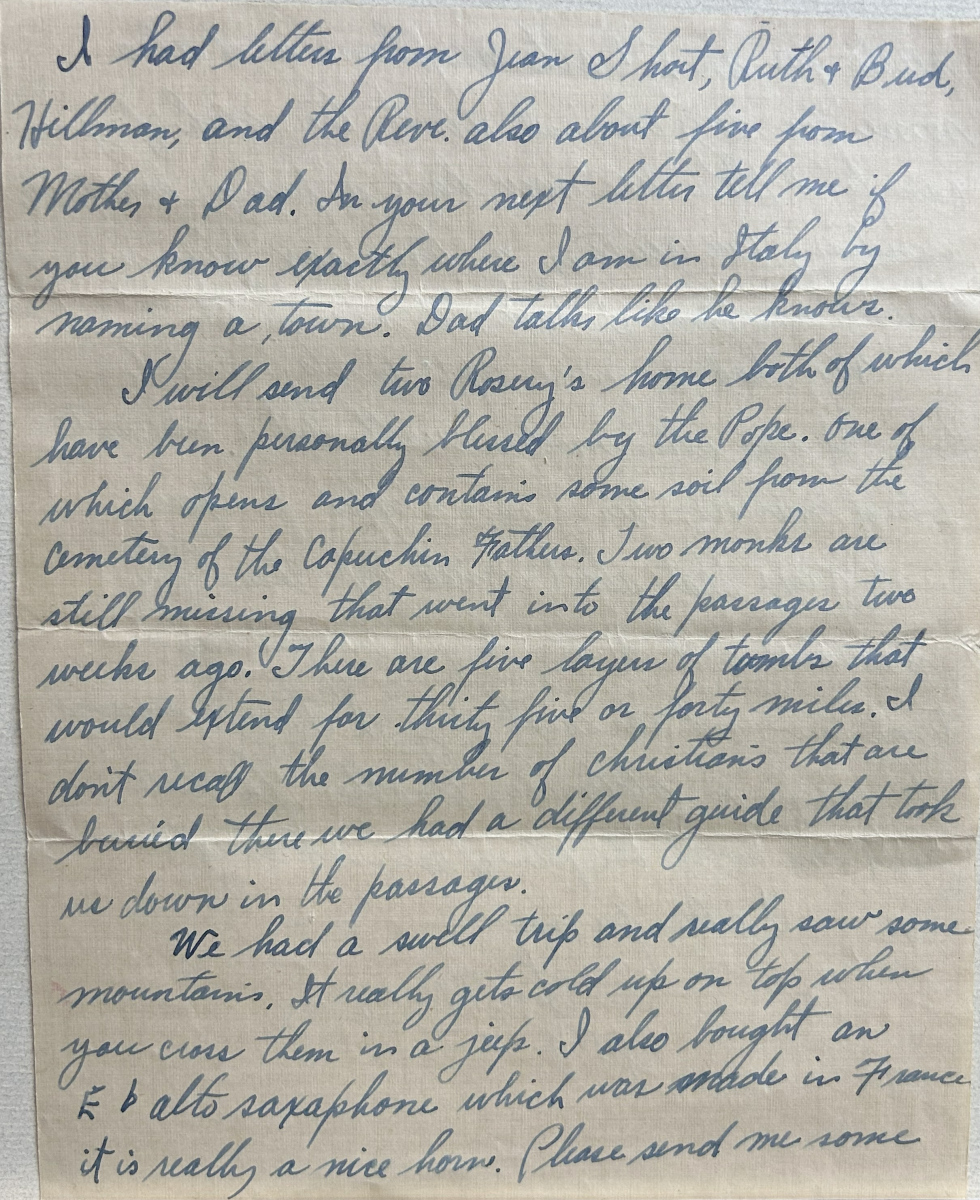 I had letters from Jean Short, Ruth & Bud,
Hillman, and the Reve. also about five from
Mother & Dad. In your next letter tell me if
you know exactly where I am in Italy by
naming a town. Dad talks like he knows.
I will send two Rosery's home both of which
have been personally blessed by the Pope. One of
which opens and contains some soil from the
cemetery of the Capuchin Fathers. Two monks are
still missing that went into the passages two
weeks ago. There are five layers of tombs that
would extend for thirty five or forty miles. I
don't recall the number of christians that are
buried there we had a different guide that took
us down in the passages.
We had a swell trip and really saw some
mountains. It really gets cold up on top when
you cross them in a jeep. I also bought an
E♭ alto saxaphone which was made in France
it is really a nice horn. Please send me some